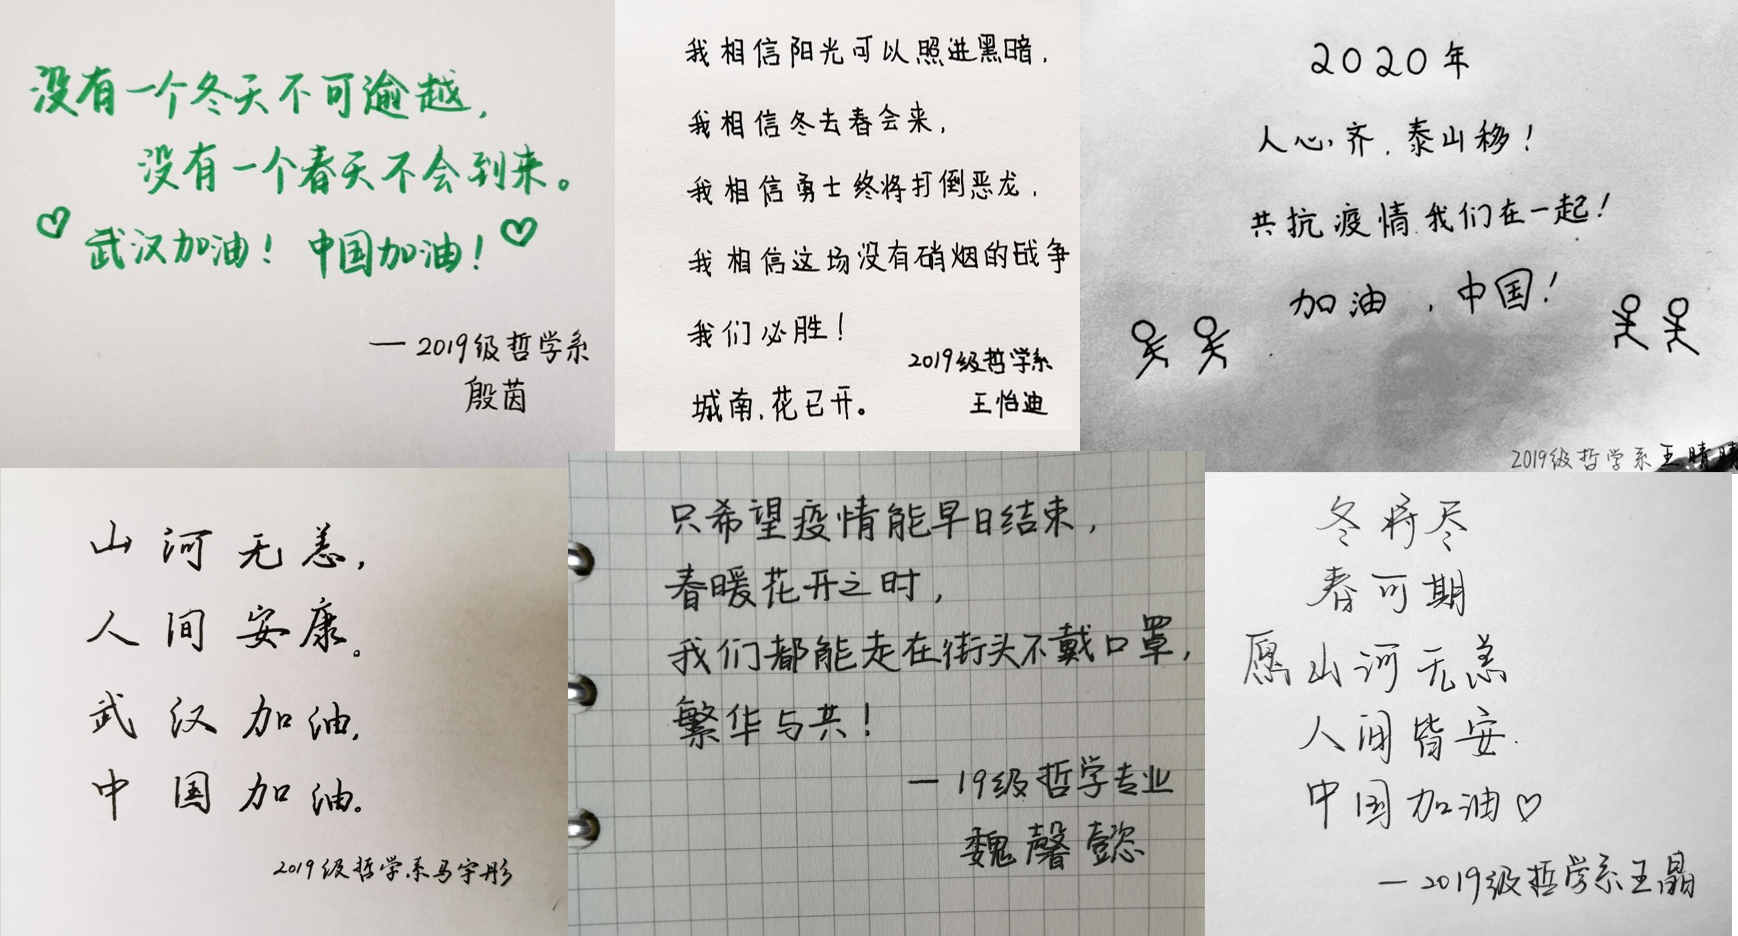 没有一个冬天不可逾越，
没有一个春天不会到来。
武汉加油！ 中国加油！
— 2019级哲学系
殷茵
我相信阳光可以照进黑暗，
我相信冬去春会来，
我相信勇士终将打倒恶龙，
我相信这场没有硝烟的战争
我们必胜！
2019级哲学系
城南，花已开。
王怡迪
2020年
人心齐，泰山移！
共抗疫情 我们在一起！
加油，中国！
2019级哲学系 王晴晴
山河无恙，
人间安康。
武汉加油，
中国加油。
2019级哲学系马宇彤
只希望疫情能早日结束，
春暖花开之时，
我们都能走在街头不戴口罩，
繁华与共！
— 19级哲学专业
魏馨懿
冬将尽
春可期
愿山河无恙
人间皆安.
中国加油♡
— 2019级哲学系王晶